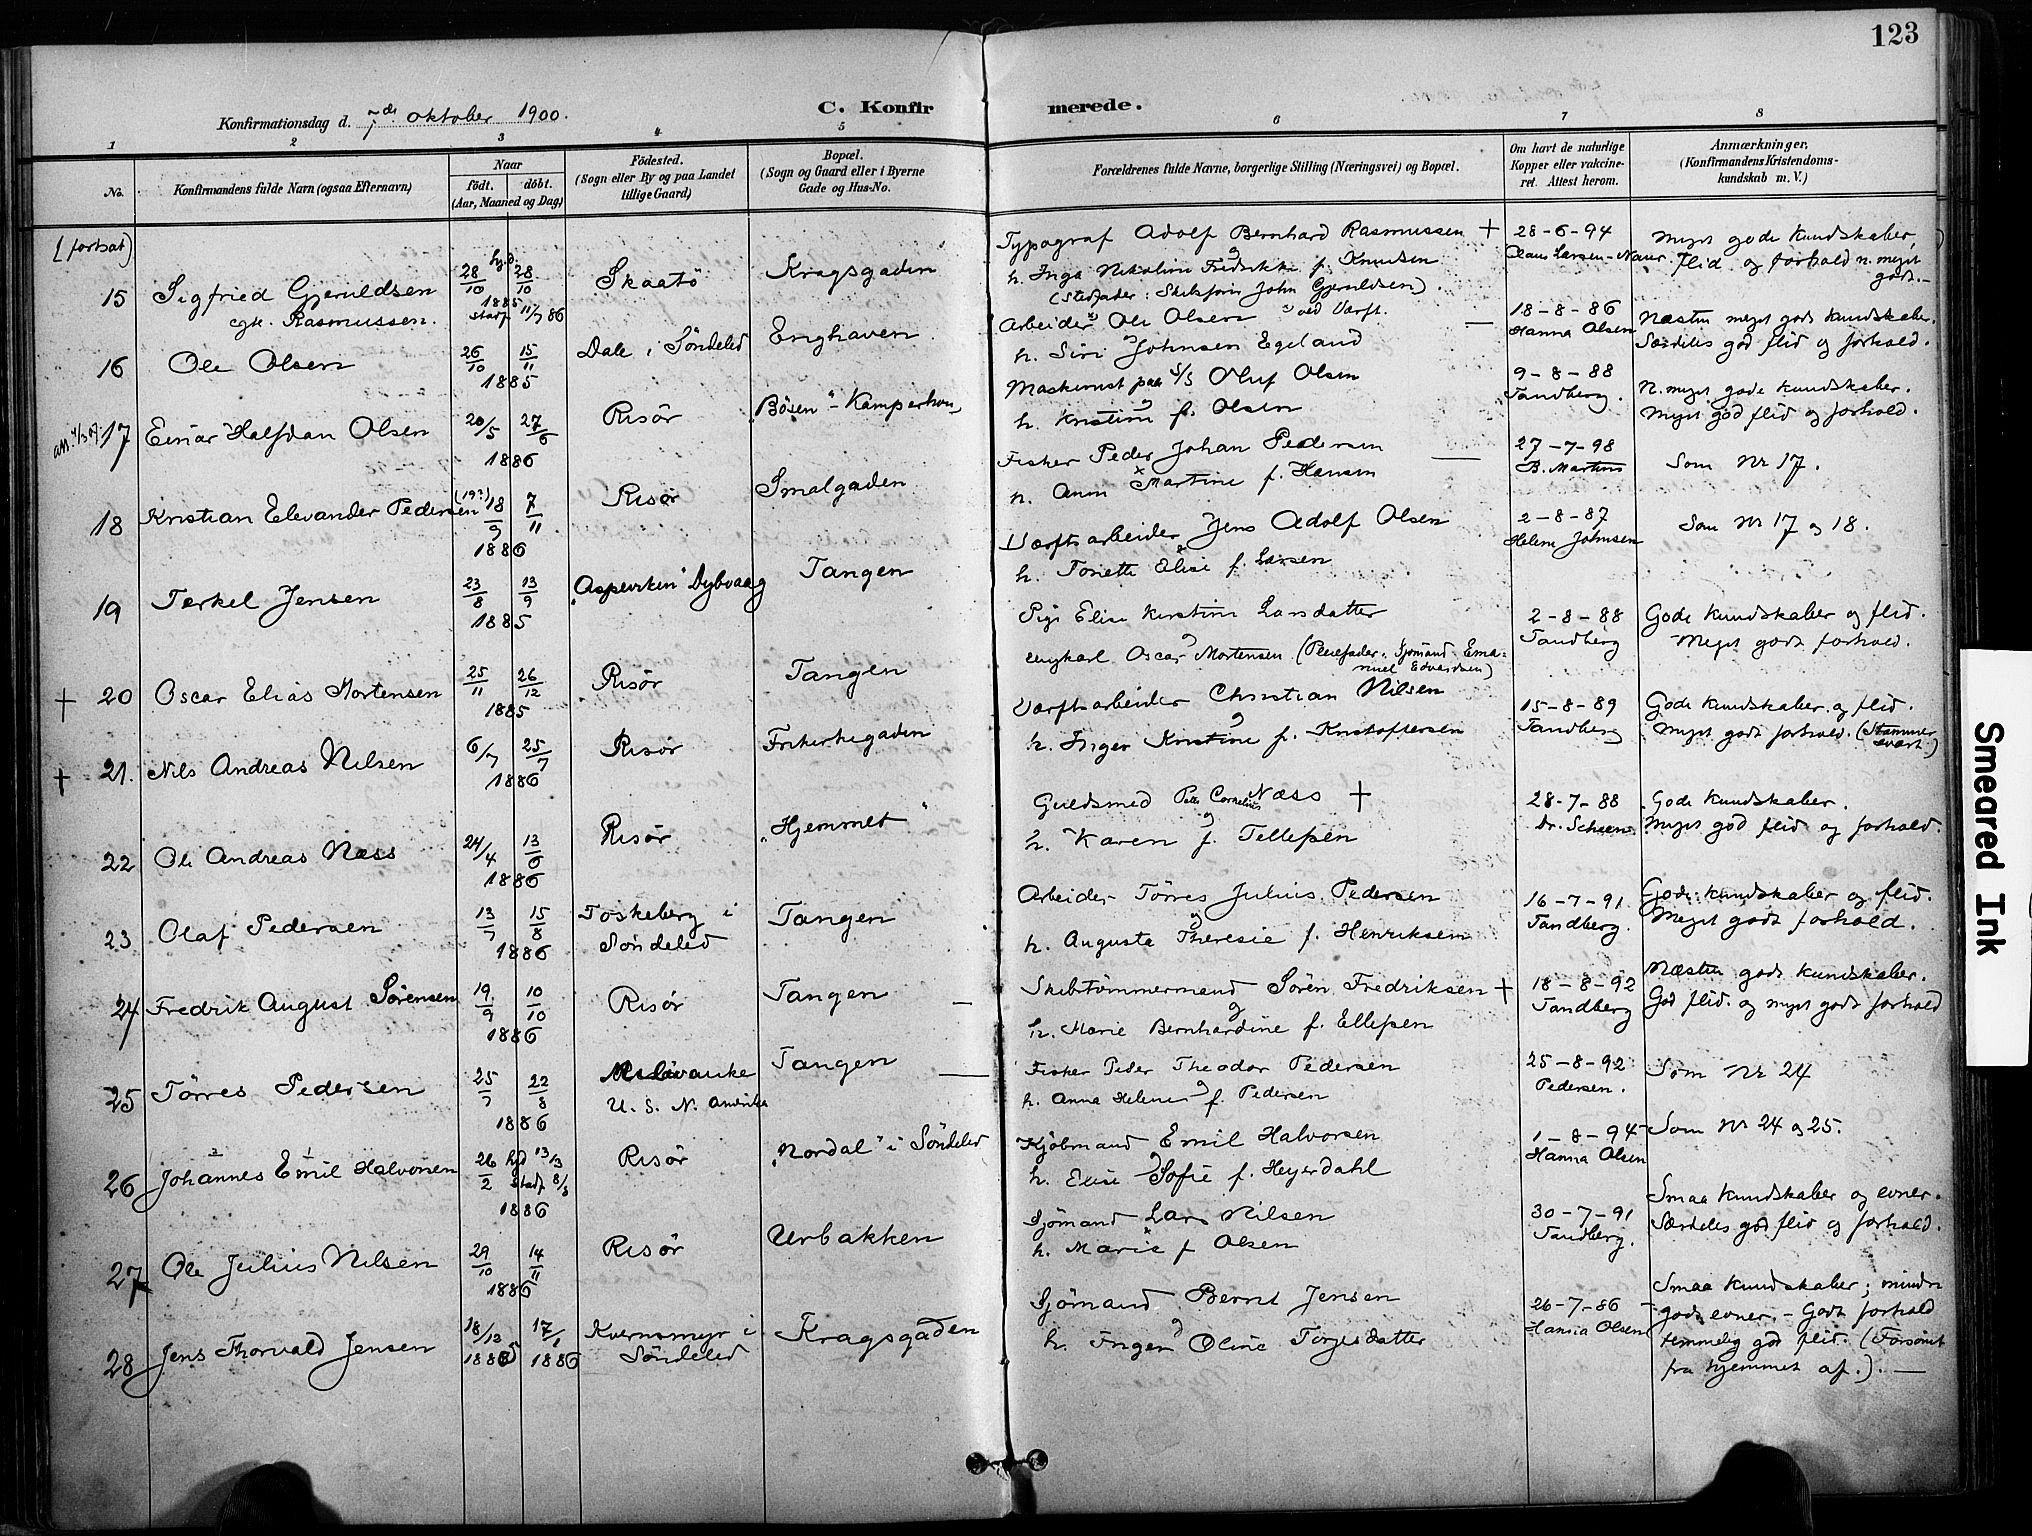 123
Konfirmationsdag d. 7de oktober 1900.
C. Konfir merede.
1 2 3 4 5 6 7 8
No.
Konfirmandens fulde Navn (ogsaa Efternavn)
Naar
födt. döbt.
(Aar, Maaned og Dag)
Födested.
(Sogn eller By og paa Landet
tillige Gaard)
Bopæl.
(Sogn og Gaard eller i Byerne
Gade og Hus-No.
Forældrenes fulde Navne, borgerlige Stilling (Næringsvei) og Bopæl.
Om havt de naturlige
Kopper eller vakcine-
ret. Attest herom.
Anmærkninger,
(Konfirmandens Kristendoms-
kundskab m. V.)
(fortsat)
15 Sigfried Gjeruldsen
egtl. Rasmussen.
28/10 hjd. 28/10
1885
stadf 11/7 86
Skaatö
Kragsgaden
Typograf Adolf Bernhard Rasmussen +
og
h. Inga Nikoline Fredrikke f. Knudsen
(Stedfader: Skibsförer John Gjeruldsen).
28-6-94
Claus Larsen-Naur
Meget gode kundskaber,
flid og forhold n. meget
godt.-
16 Ole Olsen
26/10 15/11
1885
Dale i Söndeled
Enghaven
Arbeider Ole Olsen ved Værft.
h. Siri Johnsen Egeland
18-8-86
Hanna Olsen
Næsten meget gode kundskaber.
Særdeles god flid og forhold.
17 Einar Halfdan Olsen
20/5 27/6
1886
Risör
"Böien" - Kamperhou
Maskinist paa S/S Oluf Olsen
og
h. Kristine f. Olsen
9-8-88
Tandberg.
N. meget gode kundskaber.
Meget god flid og forhold.
18 Kristian Elevander Pedersen
(19?) 18/9 7/11
1886
Risör
Smalgaden
Fisker Peder Johan Pedersen
h. Anne Martine f. Hansen
27-7-98
B. Martins
Som Nr 17.
19 Terkel Jensen
23/8 13/9
1885
"Aspevikin" Dybvaag
Tangen
Værftsarbeider Jens Adolf Olsen
h. Tonette Elise f. Larsen
2-8-87
Helene Johnsen
Som Nr 17 og 18.
+ 20 Oscar Elias Mortensen
25/11 26/12
1885
Risör
Tangen
Pige Elise Kirstine Larsdatter
og
ungkarl Oscar Mortensen (Pleiefader: Sjömand Ema-
nuel Edvardsen)
2-8-88
Tandberg
Gode kundskaber og flid.
Meget godt forhold.
+ 21. Nils Andreas Nilsen
6/7 25/7
1886
Risör
Frikirkegaden
Værftsarbeider Christian Nilsen
og
h. Inger Kristine f. Kristoffersen
15-8-89
Tandberg
Gode kundskaber og flid.
Meget godt forhold. (Stammer
svært)
22 Ole Andreas Næss
24/4 13/6
1886
Risör
"Hjemmet"
Guldsmed Peter Cornelius Næss +
og
h. Karen f. Tellefsen
28-7-88
Dr. Scheen
Gode kundskaber.
Meget god flid og forhold.
23 Olaf Pedersen
13/7 15/8
1886
Toskeberg i
Söndeled
Tangen
Arbeider Törres Julius Pedersen
og
h. Auguste Theresie f. Henriksen
16-7-91
Tandberg.
Gode kundskaber og flid.
Meget godt forhold.
24 Fredrik August Sörensen
19/9 10/10
1886
Risör
Tangen
Skibstömmermand Sören Fredriksen +
og
h. Marie Bernhardine f. Ellefsen
18-8-92
Tandberg
Næsten gode kundskaber.
God flid og meget godt forhold
25 Törres Pedersen
25/7 22/8
1886
U. S. N. Amerika
Tangen
Fisker Peder Theodor Pedersen
og
h. Anna Helene f. Pedersen
25-8-92
Pedersen.
Som Nr 24
26 Johannes Emil Halvorsen
26/2 hjd 13/3
stadf 8/8
1886
Risör
"Nordal" i Söndeled
Kjöbmand Emil Halvorsen
og
h. Elise Sofie f. Heyerdahl
1-8-94
Hanna Olsen
Som Nr 24 og 25.
27 Ole Julius Nilsen
29/10 14/11
1886
Risör
Urbakken
Sjömand Lars Nilsen
h. Marie f Olsen
30-7-91
Tandberg.
Smaa kundskaber og evner.
Særdeles god flid og forhold.
28 Jens Thorvald Jensen
18/12 17/1
1885 1886
Kvernsmyr i
Söndeled
Kragsgaden
Sjömand Bernt Jensen
og
h. Inger Oline Torjesdatter
26-7-86
Hanna Olsen
Smaa kundskaber; mindre
gode evner. - Godt forhold
temmelig god flid. (Forsömt
fra hjemmet af.). -
Smeared Ink